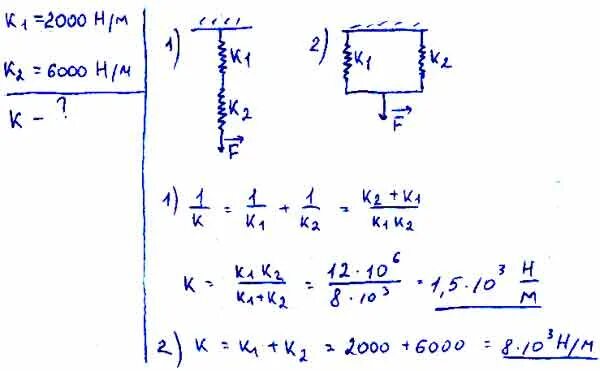 K1 = 2000 Н/м
K2 = 6000 Н/м
K - ?
1) K1 K2 F
2) K1 K2 F
1) 1/K = 1/K1 + 1/K2 = (K2 + K1)/(K1 K2)
K = (K1 K2)/(K1 + K2) = (12 · 10^6)/(8 · 10^3) = 1,5 · 10^3 Н/м
2) K = K1 + K2 = 2000 + 6000 = 8 · 10^3 Н/м